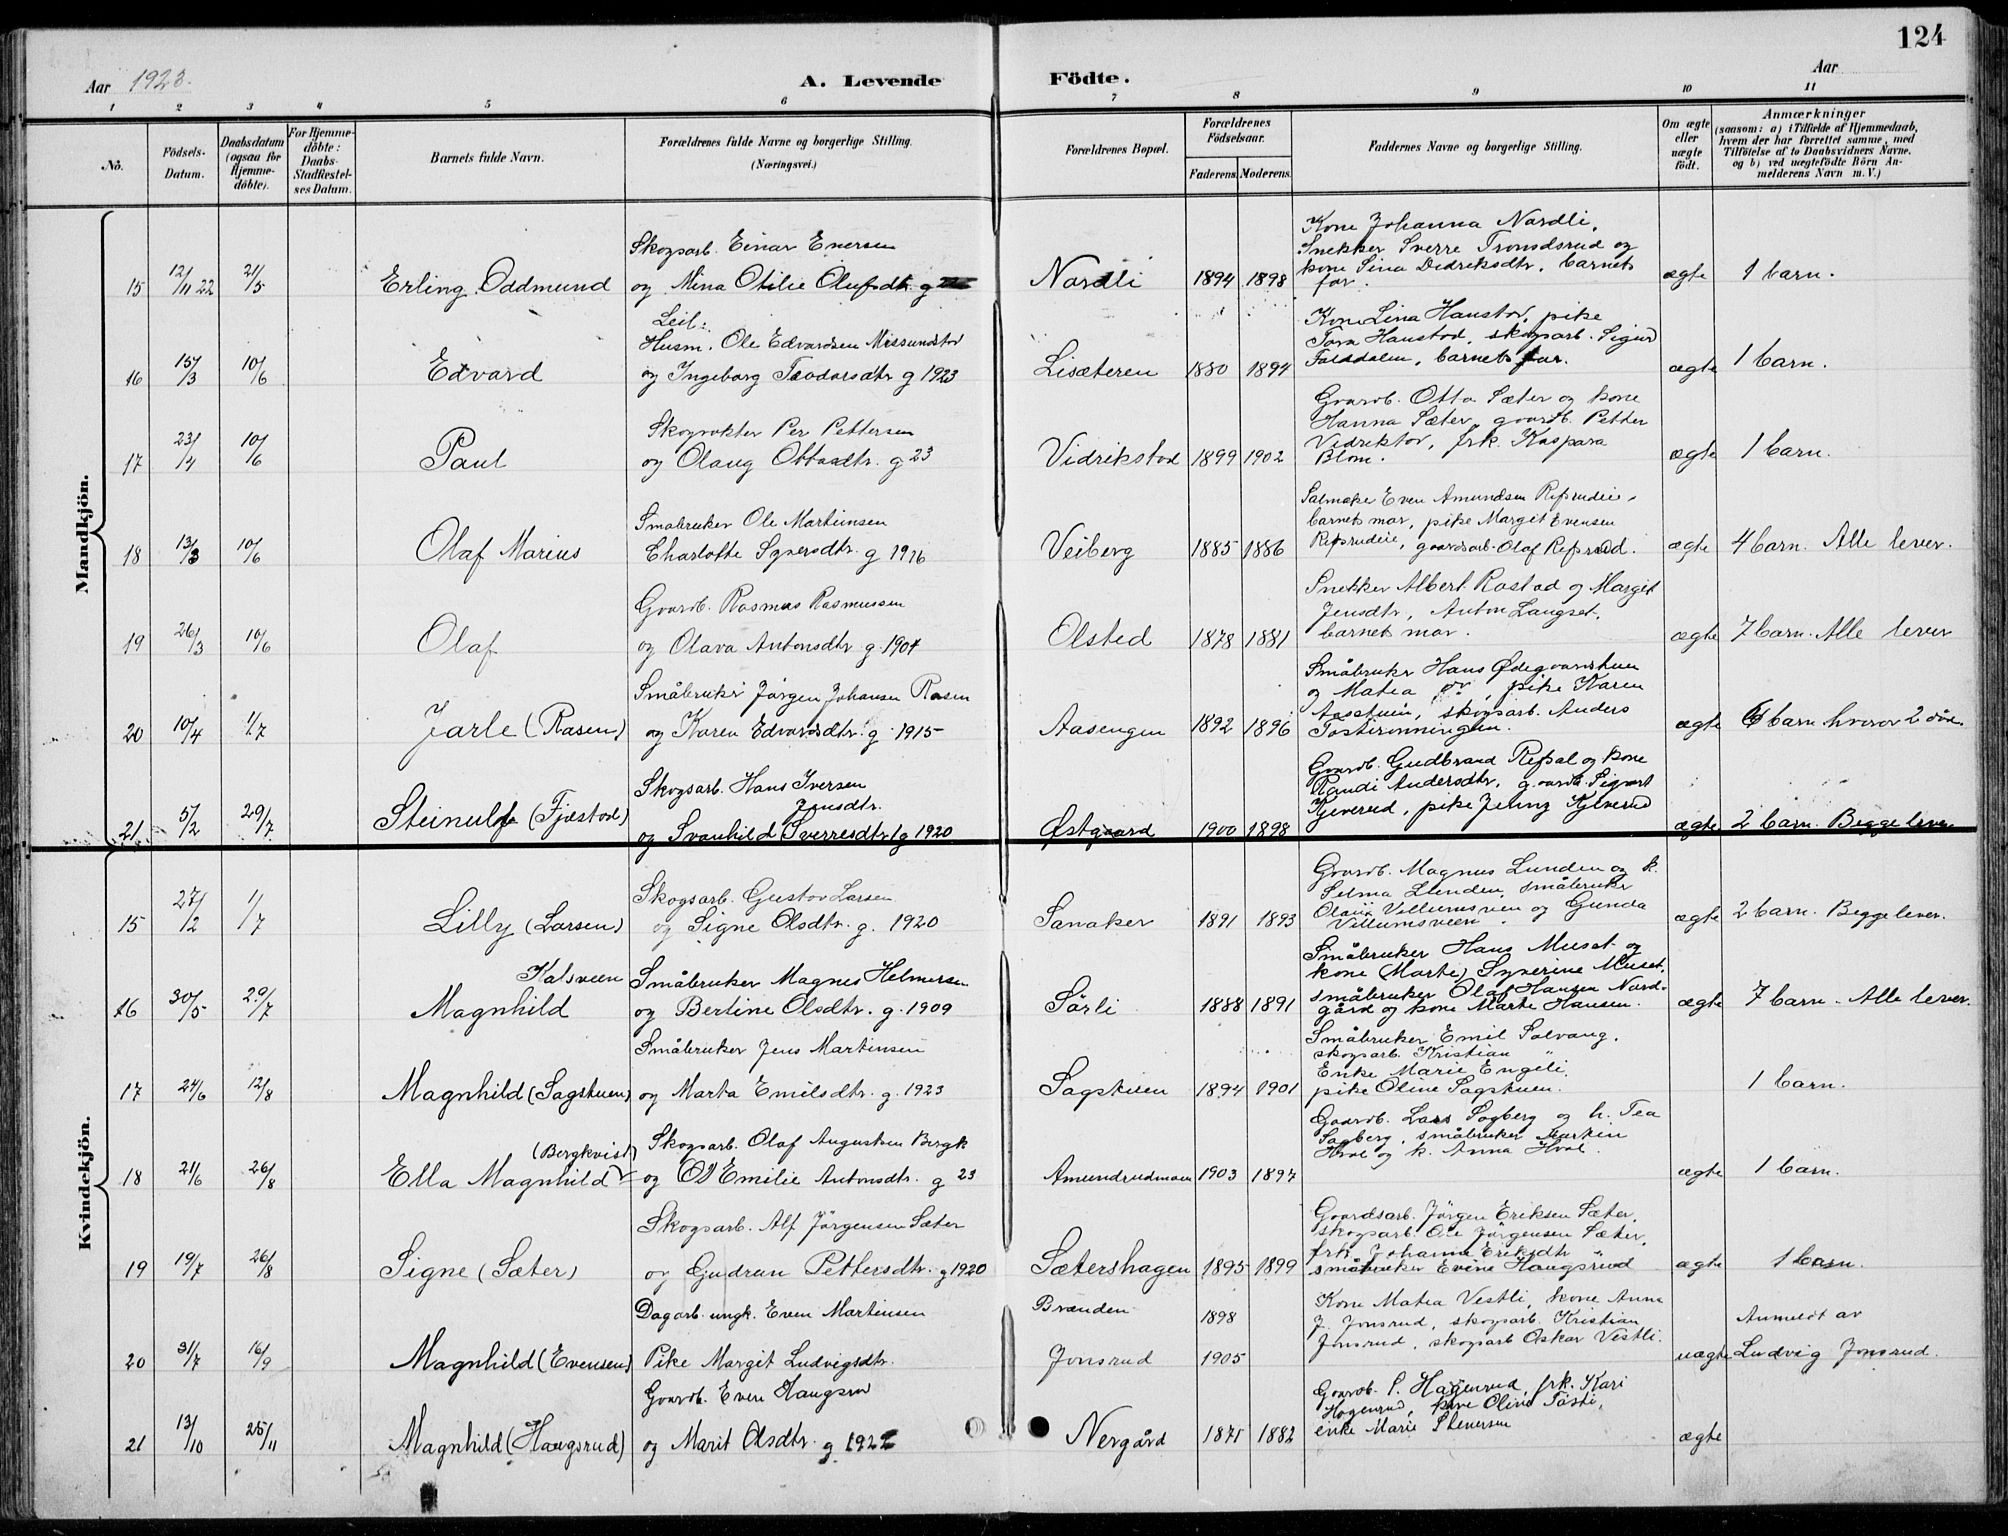 124
Aar 1923.
A. Levende Födte.
Aar
1 2 3 4 5 6 7 8 9 10 11
No.
Födsels-Datum.
Daabsdatum (ogsaa for Hjemmedöbte).
For Hjemmedöbte: Daabs-Stadfæstelses Datum.
Barnets fulde Navn.
Forældrenes fulde Navne og borgerlige Stilling. (Næringsvei.)
Forældrenes Bopæl.
Forældrenes Födselsaar.
Faderens. Moderens.
Faddernes Navne og borgerlige Stilling.
Om ægte eller uægte födt.
Anmærkninger
(saasom: a) i Tilfælde af Hjemmedaab, hvem der har forrettet samme, med Tilföielse af to Daabsvidners Navne. og b) ved uægtefödte Börn Anmelderens Navn m. V.)
Mandkjön.
15 12/11 22 21/5 Erling Oddmund
Skogsarb. Einar Enersen
og Mina Otilie Olufsdtr. g
Nordli 1894 1898
Kone Johanna Nordli,
Snekker Sverre Tronsdsrud og
kone Sina Didriksdtr. barnets
far.
ægte 1 barn.
16 15/3 10/6 Edvard
Leil:
Husm. Ole Edvardsen Missundstod
og Ingeborg Teodorsdtr g 1923
Lisæteren 1880 1894
Kone Lina Haustod, pike
Tora Haustod, skogsarb. Sigurd
Folddalen, barnets far.
ægte 1 barn.
17 23/4 10/6 Paul
Skogvokter Per Pettersen
og Olaug Ottosdtr. g 23
Vidrikstod 1899 1902
Gaardb. Otto Sæter og kone
Hanna Sæter, gaardb. Petter
Vidrikstod, frk. Kaspara
Blom.
ægte 1 barn.
18 13/3 10/6 Olaf Marius
Småbruker Ole Martinsen
Charlotte Syversdtr. g 1916
Veiberg 1885 1886
Salmaker Even Amundsen Refsrudeie,
barnets mor, pike Margit Evensen
Refsrudeie, gaardsarb. Olaf Refsrud.
ægte 4 barn. Alle lever.
19 26/3 10/6 Olaf
Gaardb. Rasmus Rasmussen
og Olava Antonsdtr g. 1904
Olsted 1878 1881
Snekker Albert Rostad og Margit
Jensdtr, Anton Langset,
barnets mor.
ægte 7 barn. Alle lever
20 10/4 1/7 Jarle (Rasen)
Småbruker Jörgen Johansen Rasen
og Karen Edvardsdtr. g. 1915
Aasengen 1892 1896
Småbruker Hans Ødegaardstuen
og Matea do, pike Karen
Aasetuen, skogsarb. Anders
Töstirönningen.
ægte 6 barn hvorav 2 döe
21 5/2 29/7 Steinulf (Fjæstad)
Skogsarb. Hans Iversen
Jensdtr.
og Svanhild Sverresdtr g 1920
Østgaard 1900 1898
Gaardb. Gudbrand Refsal og kone
Randi Andersdtr, gaardb. Sigvart
Kjeverud, pike Jenny Kjeverud
ægte 2 barn. Begge lever
Kvindekjön.
15 27/2 1/7 Lilly (Larsen)
Skogsarb. Gustav Larsen
og Signe Olsdtr. g. 1920
Sanaker 1891 1893
Gaardb. Magnus Lunden og k.
Selma Lunden, småbruker
Olaus Villumsveen og Gunda
Villumsveen.
ægte 2 barn. Begge lever.
16 30/5 29/7 Kalsveen
Magnhild
Småbruker Magnus Helmersen
og Bertine Olsdtr. g. 1909
Sörli 1888 1891
Småbruker Hans Muset og
kone (Marte) Syverine Muset,
småbruker Olaf Hansen Nord-
gård og kone Marte Hansen.
ægte 7 barn. Alle lever.
17 24/6 12/8 Magnhild (Sagstuen)
Småbruker Jens Martinsen
og Marta Emilsdtr. g. 1923
Sagstuen 1894 1901
Småbruker Emil Solvang,
skogsarb. Kristian "
Enke Marie Engeli,
pike Oline Sagstuen.
1 barn.
18 21/6 26/8 (Bergkvist)
Ella Magnhild
Skogsarb. Olaf Augustsen Bergk
og Emilie Antonsdtr. g 23
Amundrudmoen 1903 1897
Gaardb. Lars Sagberg og h. Tea
Sagberg, småbruker Martin
Hval og k. Anna Hval.
ægte 1 barn.
19 19/7 26/8 Signe (Sæter)
Skogsarb. Alf Jörgensen Sæter
og Gudrun Pettersdtr. g 1920
Sætershagen 1895 1899
Gaardsarb. Jörgen Eriksen Sæter,
skogsarb. Ole Jörgensen Sæter,
frk. Johanne Eriksdtr "
småbruker Evine Haugsrud
ægte 1 barn.
20 31/7 16/9 Magnhild (Evensen)
Dagarb. ungk. Even Martinsen
Pike Margit Ludvigsdtr.
Brænden 1898
Jonsrud 1905
Kone Matea Vestli, kone Anna
J. Jonsrud, skogsarb. Kristian
Jonsrud, skogsarb Oskar Vestli.
uægte
Anmeldt av
Ludvig Jonsrud.
21 13/10 25/11 Magnhild (Haugsrud)
Gaardb. Even Haugsrud
og Marit Olsdtr. g 1922
Nergård 1871 1882
Gaardb. P. Hagenrud, frk. Kari
Hagenrud, kone Oline Tösti,
enke Marie Stenersen
ægte